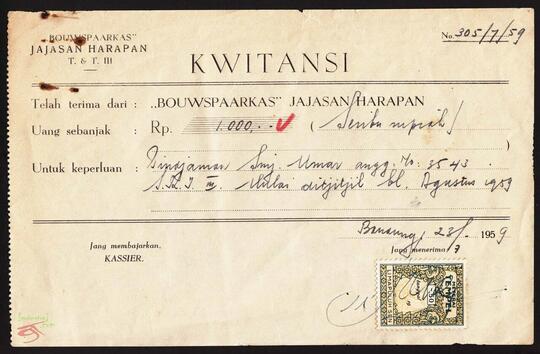 „BOUWSPAARKAS"
JAJASAN HARAPAN
T. & T. III
No. 305/7/59
KWITANSI
Telah terima dari : „BOUWSPAARKAS" JAJASAN HARAPAN
Uang sebanjak : Rp. 1.000,- (Seribu rupiah)
Untuk keperluan : Pindjaman Sdj. Umar angg. No. 3543
)
Agustus 1959
Bandung, 28/ 1959
Jang membajarkan,
Jang menerima,
KASSIER.
7
LIMAPULUH SEN